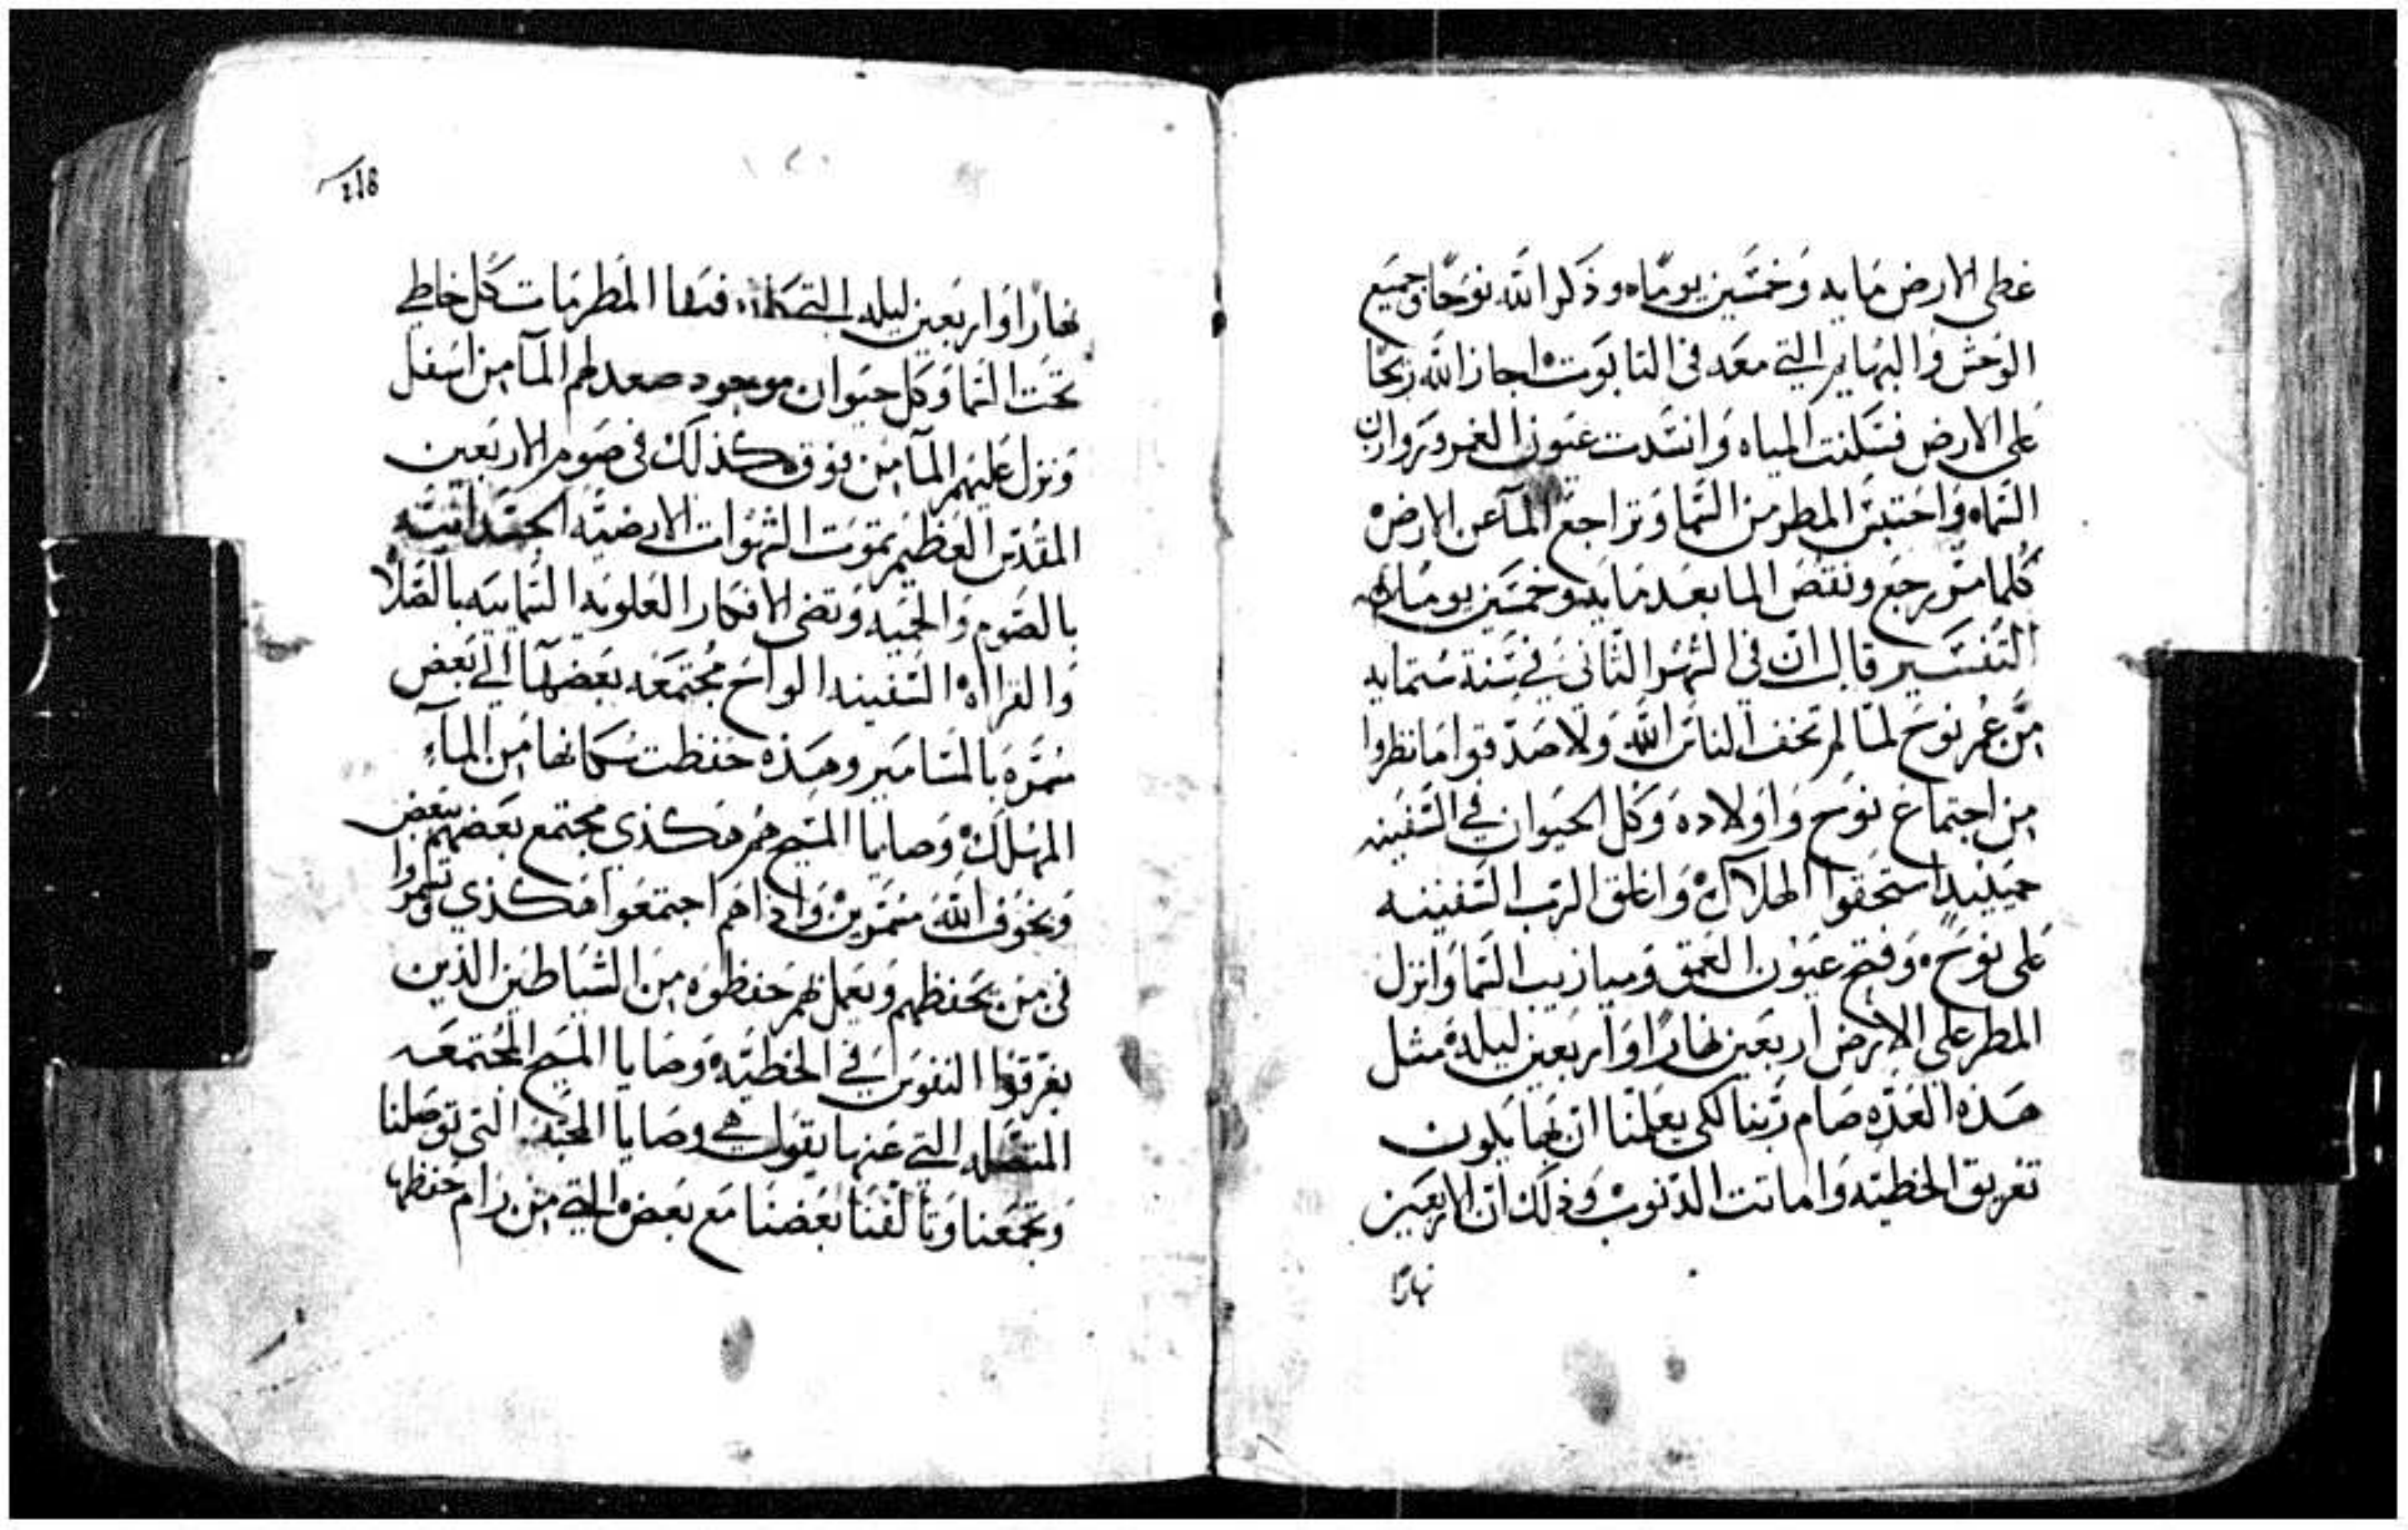 غطى الارض مايه وخمسين يوما، وذكر الله نوحا وجميع
الوحش والبهايم التي معه في التابوت اجاز الله ريحا
على الارض فسكنت المياه وانسدت عيون الغمر وروازن
السماء واحتبس المطر من السما وتراجع المآ عن الارض
كلما مر رجع ونقص الما بعد مايه وخمسين يوما
التفسير قال ان في الشهر الثاني في سنة ستمايه
من عمر نوح لما لم تخف الناس الله ولا صدقوا ما نظروا
من اجتماع نوح واولاده وكل الحيوان في السفينه
حينيذ استحقوا الهلاك واغلق الرب السفينه
على نوح، وفتح عيون العمق وميازيب السما وانزل
المطر على الارض اربعين نهارا واربعين ليلة مثل
هذه العدة صام ربنا لكي يعلمنا ان بها يكون
تغريق الخطيه واماتت الذنوب وذلك ان الاربعين
نهارًا
218
نهارا واربعين ليله التي فيها المطر مات كل خاطي
تحت السما وكل حيوان موجود صعد لهم المآ من اسفل
ونزل عليهم المآ من فوق كذلك في صوم الاربعين
المقدس العظيم تموت الشهوات الارضيه الجسدانيه
بالصوم والحميه وتضى الافكار العلويه السماييه بالصلاه
والقراأة السفينه الواح مجتمعه بعضها الى بعض
مسمره بالمسامير وهذه حفظت سكانها من المآء
المهلك وصايا المسيح هم هكذي مجتمع بعضهم ببعض
وبخوف الله مسمرين واذا هم اجتمعوا هكذي وتسمروا
في من يحفظهم ويعمل بهم حفظوه من الشياطين الذين
يغرقوا النفوس في الخطيه وصايا المسيح المجتمعه
المتصله التي عنها يقول هي وصايا المحبه التي توصلنا
وتجمعنا وتالفنا بعضنا مع بعض التي من رام حفظها